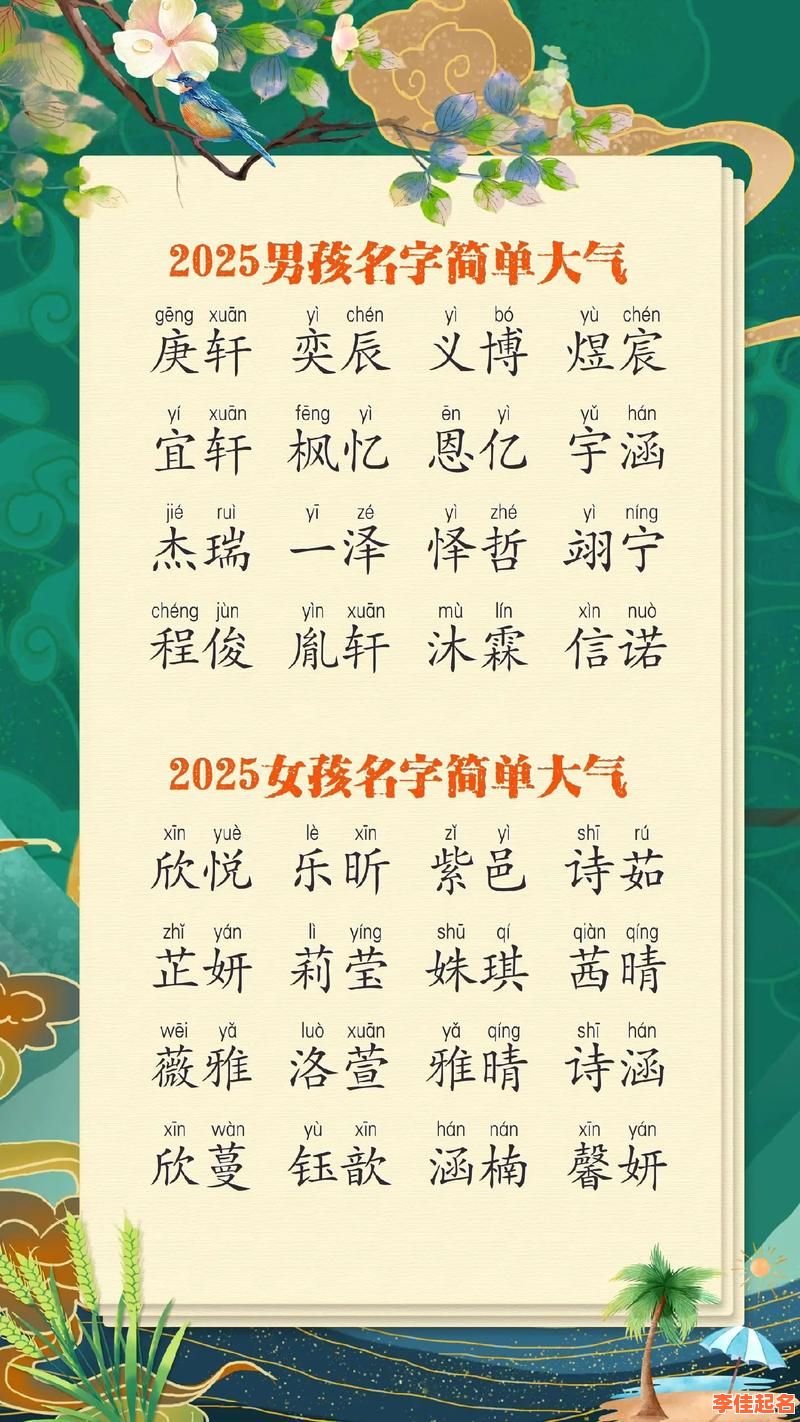 2025男孩名字简单大气
gēng xuān yì chén yì bó yù chén
庚轩 奕辰 义博 煜宸
yí xuān fēng yì ēn yì yǔ hán
宜轩 枫忆 恩亿 宇涵
jié ruì yī zé yì zhé yì níng
杰瑞 一泽 怿哲 翊宁
chéng jùn yìn xuān mù lín xìn nuò
程俊 胤轩 沐霖 信诺
2025女孩名字简单大气
xīn yuè lè xīn zǐ yì shī rú
欣悦 乐昕 紫邑 诗茹
zhǐ yán lì yíng shū qí qiàn qíng
芷妍 莉莹 姝琪 茜晴
wēi yǎ luò xuān yǎ qíng shī hán
薇雅 洛萱 雅晴 诗涵
xīn wàn yù xīn hán nán xīn yán
欣蔓 钰歆 涵楠 馨妍
李佳起名